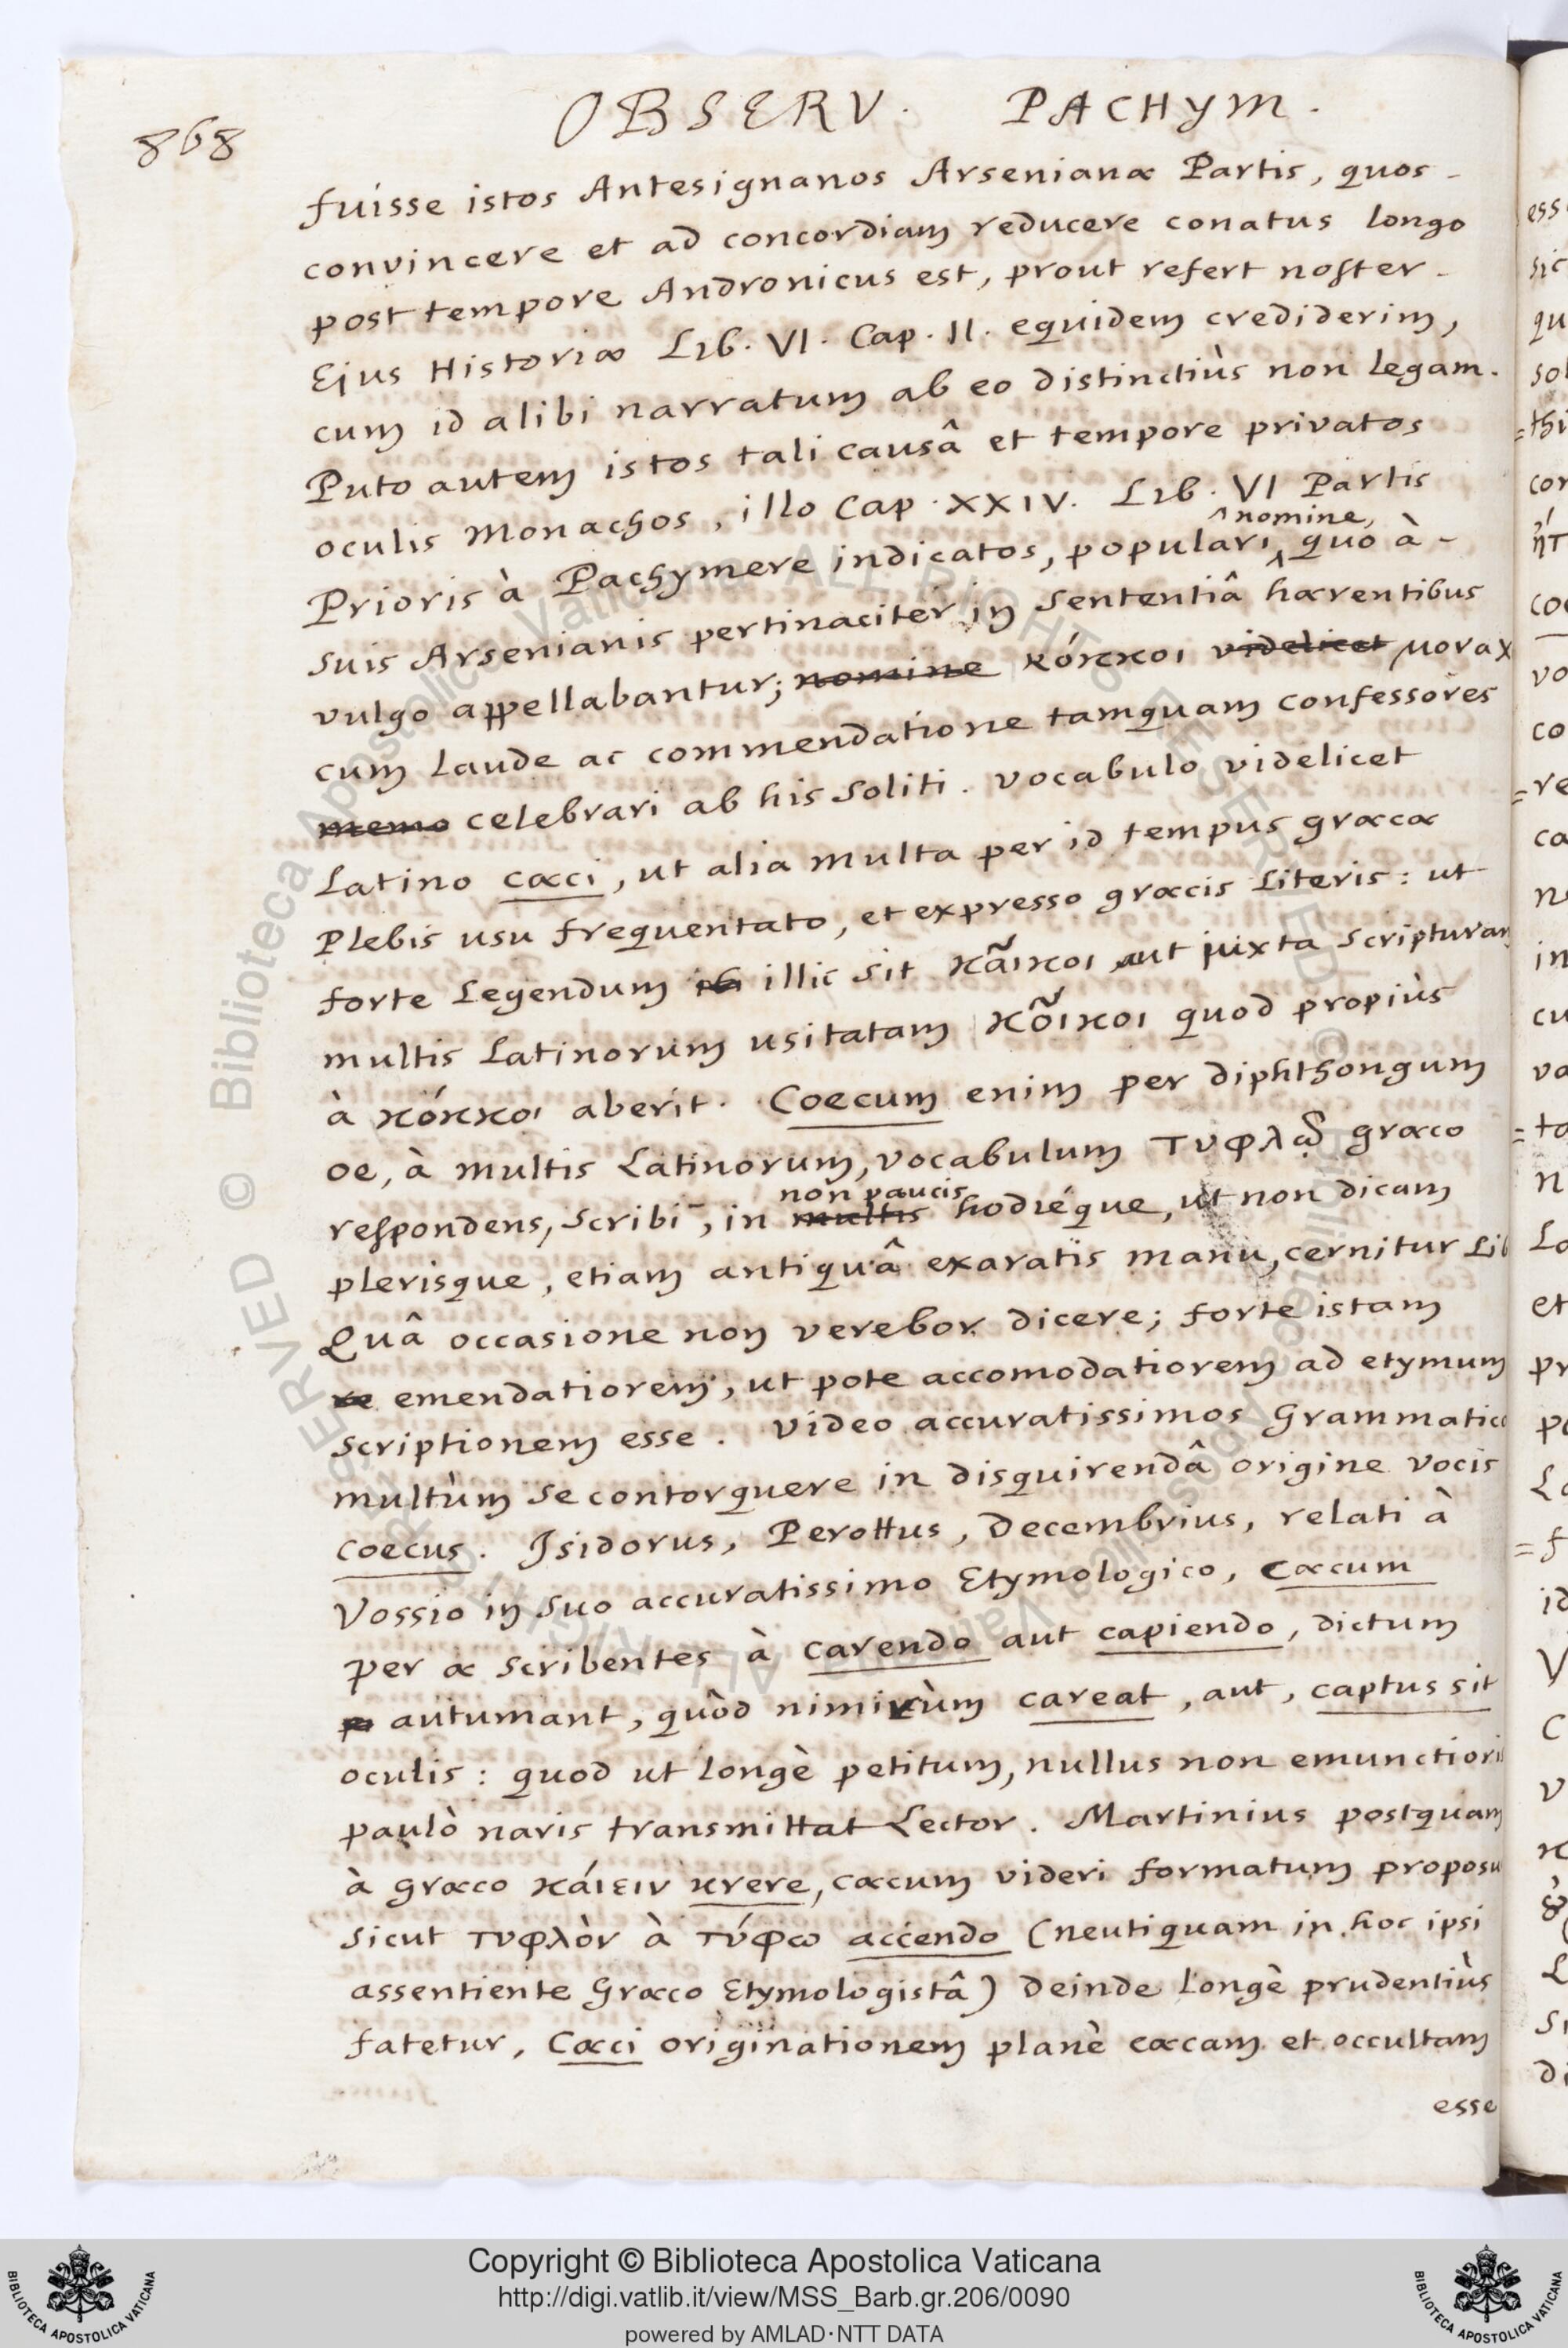 868
OBSERV. PACHYM.
fuisse istos Antesignanos Arsenianæ Partis, quos
convincere et ad concordiam reducere conatus longo
post tempore Andronicus est, prout refert noster
Ejus Historiæ Lib. VI. Cap. II. equidem crediderim,
cum id alibi narratum ab eo distinctiùs non legam.
Puto autem istos tali causâ et tempore privatos
oculis Monachos, illo Cap. XXIV. Lib. VI Partis
Prioris à Pachymere indicatos, populari nomine, quo à
suis Arsenianis pertinaciter in sententiâ hærentibus
vulgo appellabantur; nomine κόκκοι videlicet
cum laude ac commendatione tamquam confessores
memo celebrari ab his soliti. vocabulo videlicet
Latino cæci, ut alia multa per id tempus græcæ
Plebis usu frequentato, et expresso græcis literis: ut
forte legendum ibi illic sit κᾶικοι aut juxta scripturam
multis Latinorum usitatam κο͂ικοι quod propiùs
à κόκκοι aberit. Coecum enim per diphthongum
oe, à multis Latinorum, vocabulum τυφλῶ græco
respondens, scribi, in multis non paucis hodiéque, ut non dicam
plerisque, etiam antiquâ exaratis manu, cernitur Lib
Quâ occasione non verebor dicere; forte istam
re emendatiorem, ut pote accomodatiorem ad etymum
scriptionem esse. Video accuratissimos Grammatico
multùm se contorquere in disquirendâ origine vocis
coecus. Isidorus, Perottus, Decembrius, relati à
Vossio in suo accuratissimo Etymologico, Cæcum
per æ scribentes à carendo aut capiendo, dictum
autumant, quòd nimirùm careat, aut, captus sit
oculis: quod ut longè petitum, nullus non emunctioris
paulò naris transmittat Lector. Martinius postquam
à græco κάιειν urere, cæcum videri formatum proposu
sicut τυφλὸν à τύφω accendo (neutiquam in hoc ipsi
assentiente Græco Etymologistâ) deinde longè prudentiùs
fatetur, Cæci originationem planè cæcam et occultam
esse
© Biblioteca Apostolica Vaticana ALL RIGHTS RESERVED © Biblioteca Apostolica Vaticana ALL RIGHTS RESERVED
Copyright © Biblioteca Apostolica Vaticana
http://digi.vatlib.it/view/MSS_Barb.gr.206/0090
powered by AMLAD·NTT DATA
BIBLIOTECA APOSTOLICA VATICANA
BIBLIOTECA APOSTOLICA VATICANA